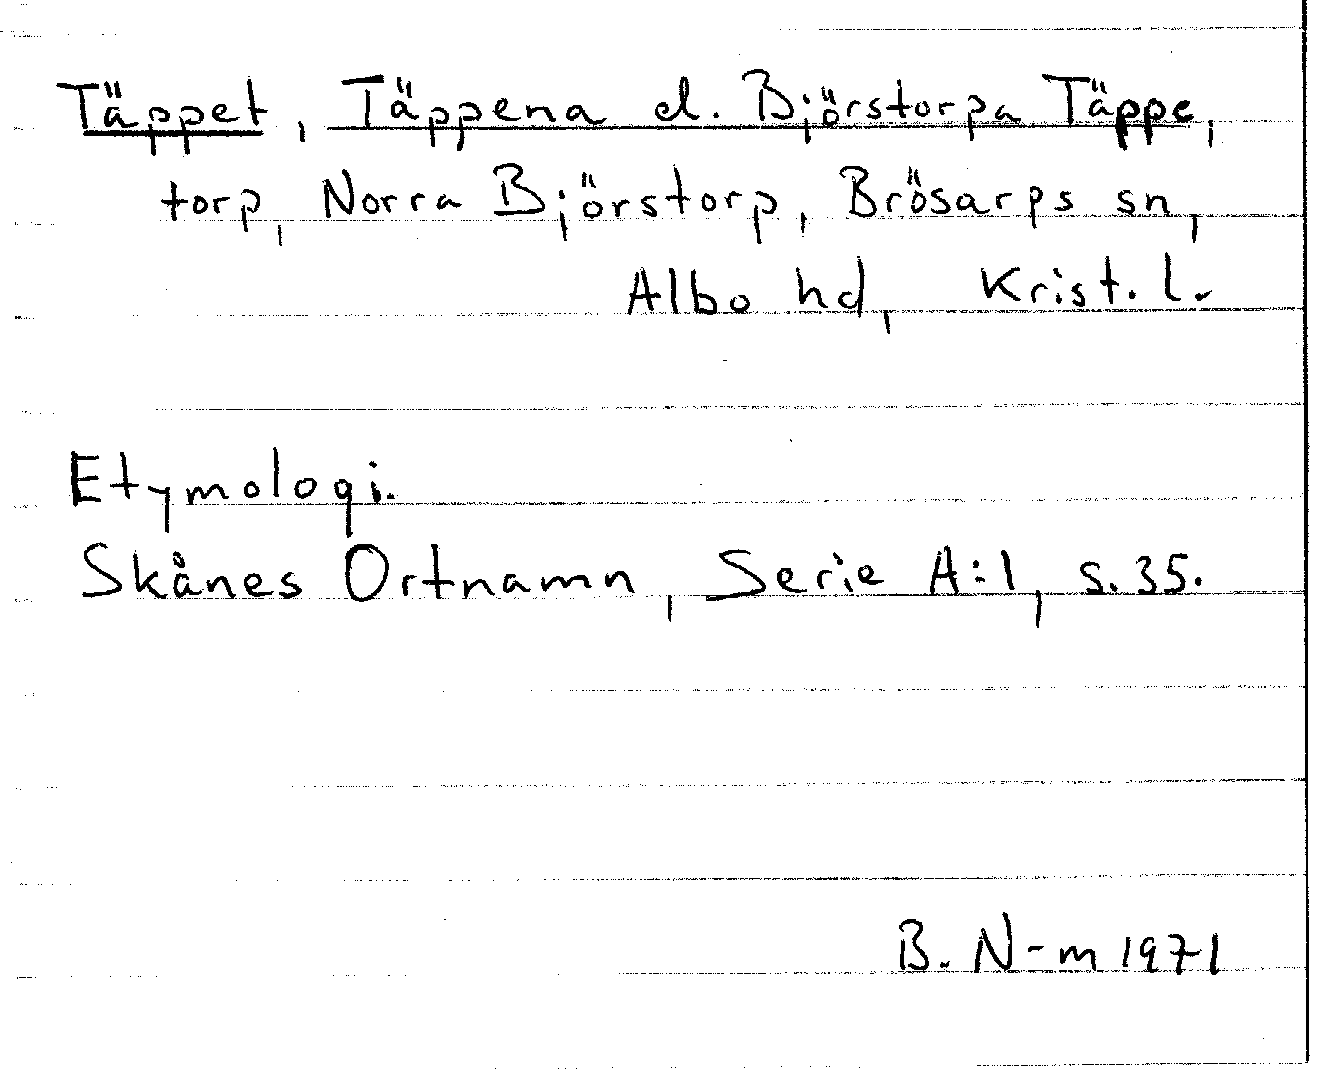 Täppet, Täppena el. Björstorpa Täppe,
torp, Norra Björstorp, Brösarps sn,
Albo hd, Krist. l.
Etymologi.
Skånes Ortnamn, Serie A:1, s. 35.
B. N-m 1971